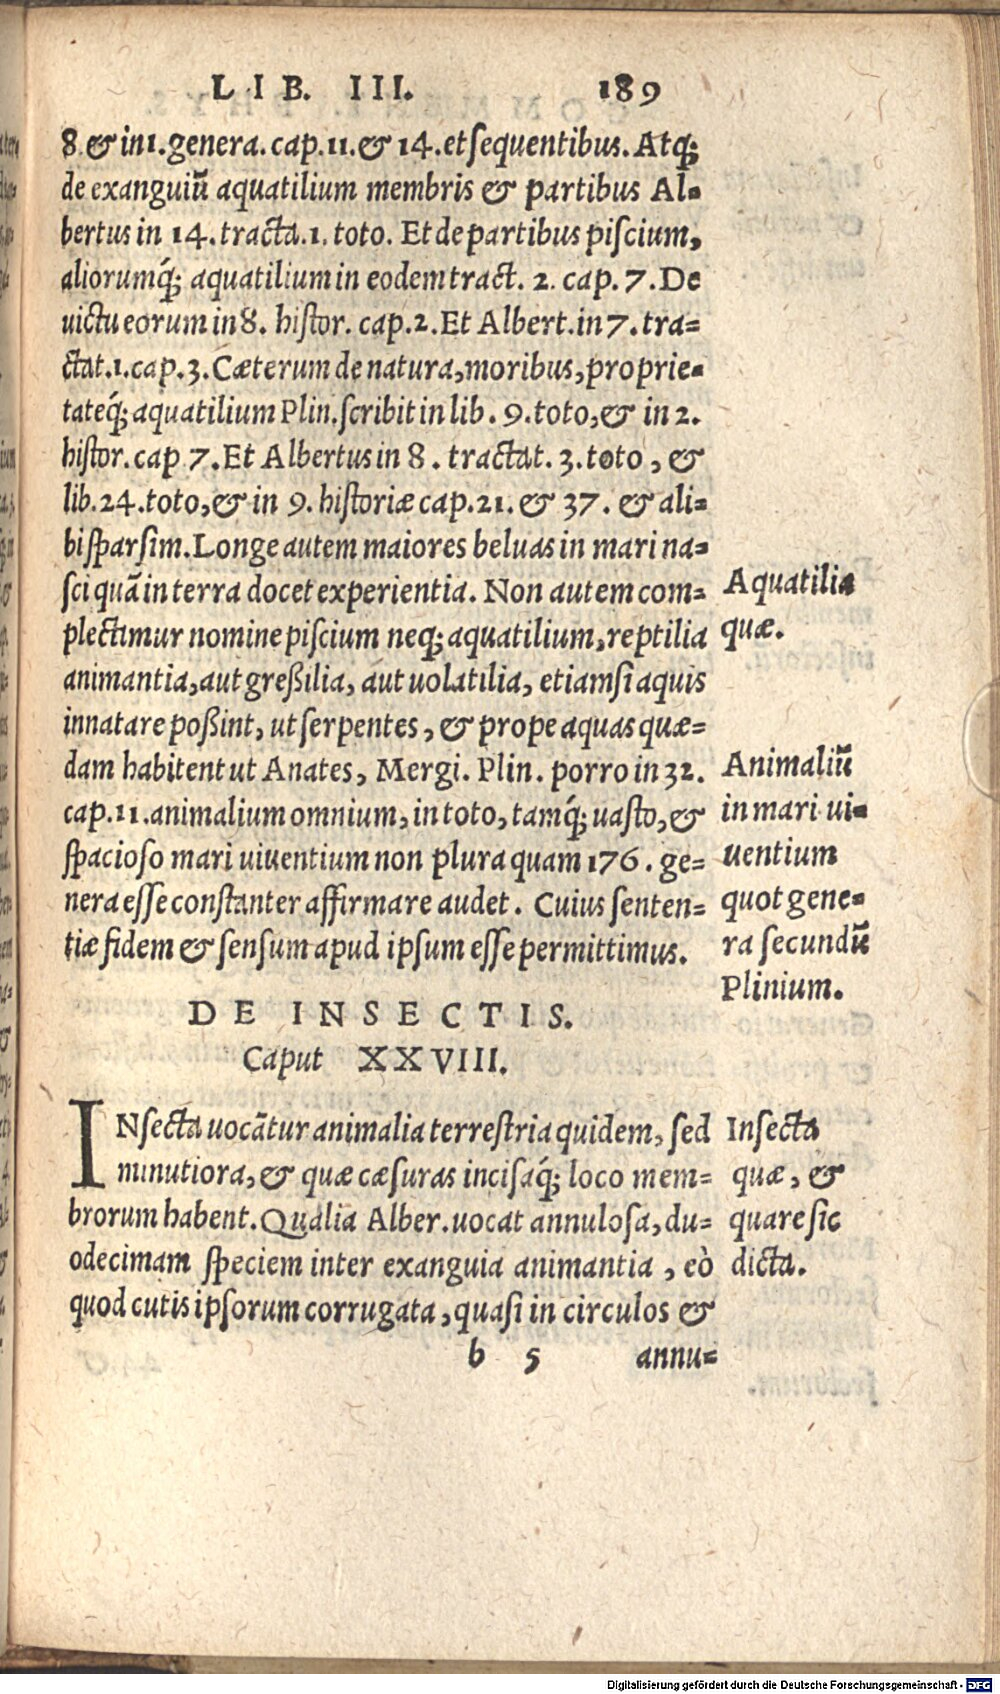 LIB. III. 189
8 & in 1. genera. cap. 11. & 14. et sequentibus. Atq;
de exanguiū aquatilium membris & partibus Al-
bertus in 14. tracta. 1. toto. Et de partibus piscium,
aliorumq́; aquatilium in eodem tract. 2. cap. 7. De
uictu eorum in 8. histor. cap. 2. Et Albert. in 7. tra-
ctat. 1. cap. 3. Cæterum de natura, moribus, proprie-
tateq́; aquatilium Plin. scribit in lib. 9. toto, & in 2.
histor. cap 7. Et Albertus in 8. tractat. 3. toto, &
lib. 24. toto, & in 9. historiæ cap. 21. & 37. & ali-
bi sparsim. Longe autem maiores beluas in mari na-
sci quā in terra docet experientia. Non autem com-
plectimur nomine piscium neq; aquatilium, reptilia
animantia, aut greßilia, aut uolatilia, etiamsi aquis
innatare poßint, ut serpentes, & prope aquas quæ-
dam habitent ut Anates, Mergi. Plin. porro in 32.
cap. 11. animalium omnium, in toto, tamq́; uasto, &
spacioso mari uiuentium non plura quam 176. ge-
nera esse constanter affirmare audet. Cuius senten-
tiæ fidem & sensum apud ipsum esse permittimus.
Aquatilia
quæ.
Animaliū
in mari ui-
uentium
quot gene-
ra secundū
Plinium.
DE INSECTIS.
Caput XXVIII.
INsecta uocātur animalia terrestria quidem, sed
minutiora, & quæ cæsuras incisaq́; loco mem-
brorum habent. Qualia Alber. uocat annulosa, du-
odecimam speciem inter exanguia animantia, eò
quod cutis ipsorum corrugata, quasi in circulos &
Insecta
quæ, &
quare sic
dicta.
b 5 annu-
Digitalisierung gefördert durch die Deutsche Forschungsgemeinschaft - DFG